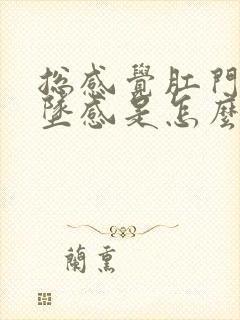 總感覺肛門
墜感是怎麼
蘭熏